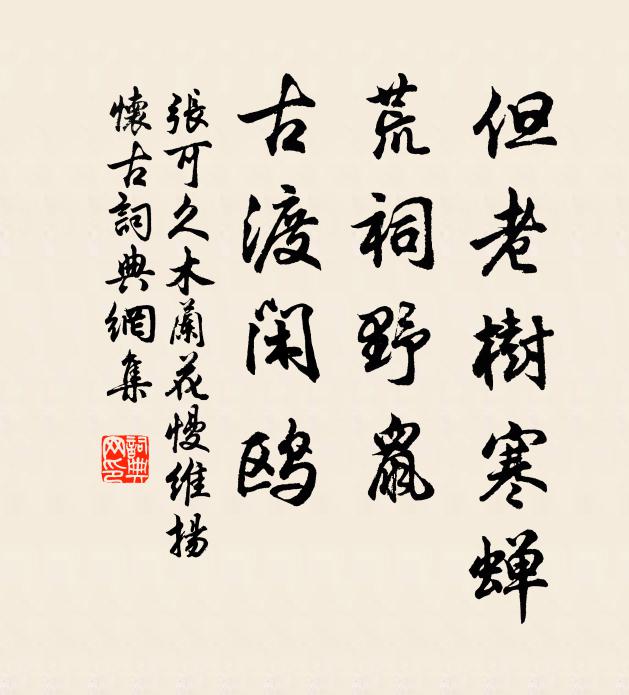 但老樹寒蝉
荒祠野鼠
古渡閑鸥
張可久木蘭花慢維揚
懷古詞典網集
詞典
网印